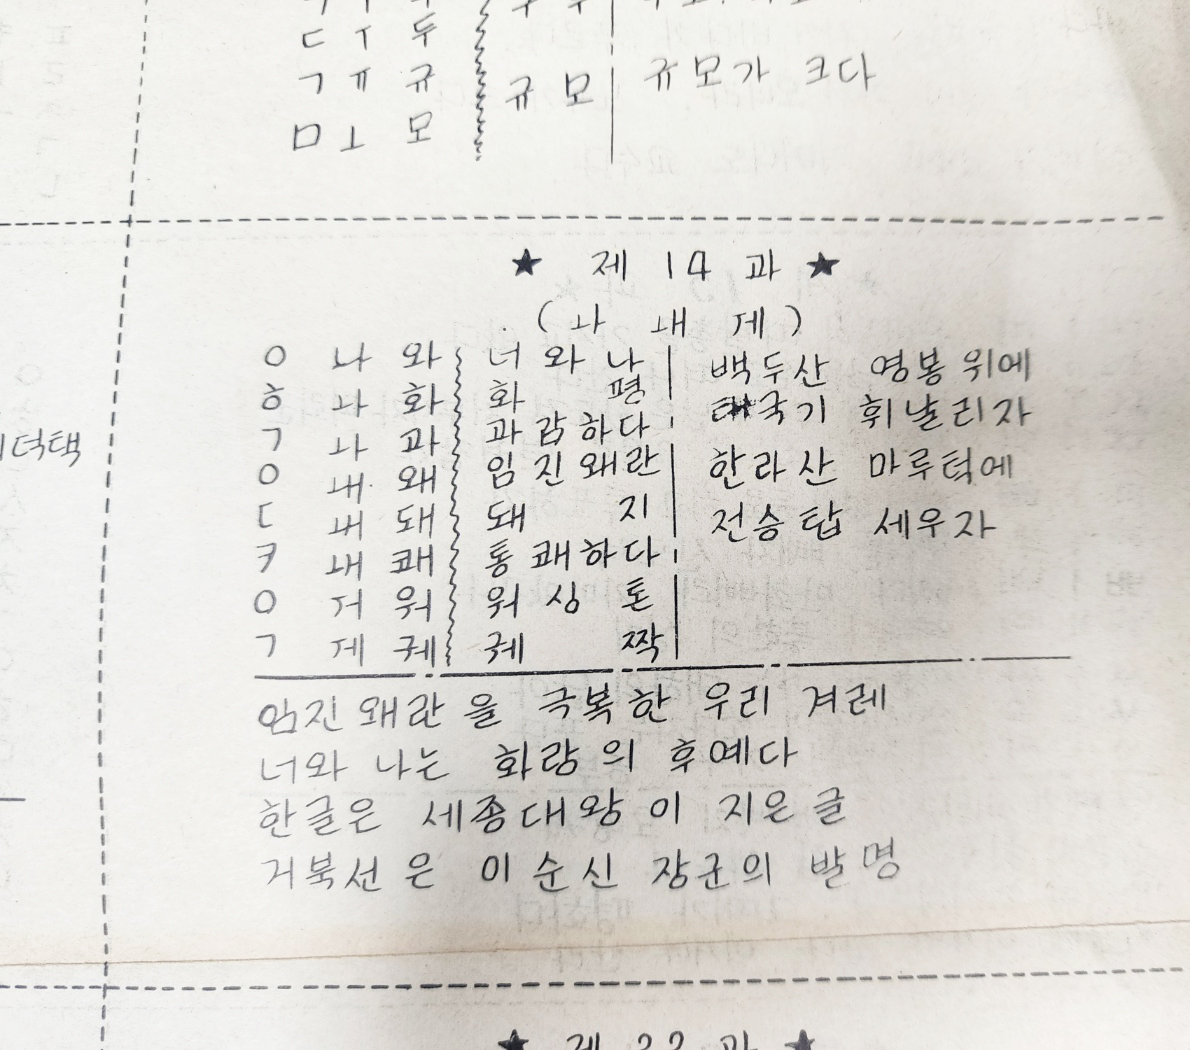 ㄷ ㅜ 두
ㄱ ㅠ 규 규모 규모가 크다
ㅁ ㅗ 모
★ 제 14 과 ★
(ㅘ ㅙ ㅞ)
ㅇ ㅘ 와 너와나 백두산 영봉 위에
ㅎ ㅘ 화 화평 태극기 휘날리자
ㄱ ㅘ 과 과감하다 한라산 마루턱에
ㅇ ㅙ 왜 임진왜란 전승탑 세우자
ㄷ ㅙ 돼 돼지
ㅋ ㅙ 쾌 통쾌하다
ㅇ ㅝ 워 워싱톤
ㄱ ㅞ 궤 궤짝
임진왜란을 극복한 우리 겨레
너와 나는 화랑의 후예다
한글은 세종대왕이 지은글
거북선은 이순신 장군의 발명
덕택
★ 제 22 과 ★